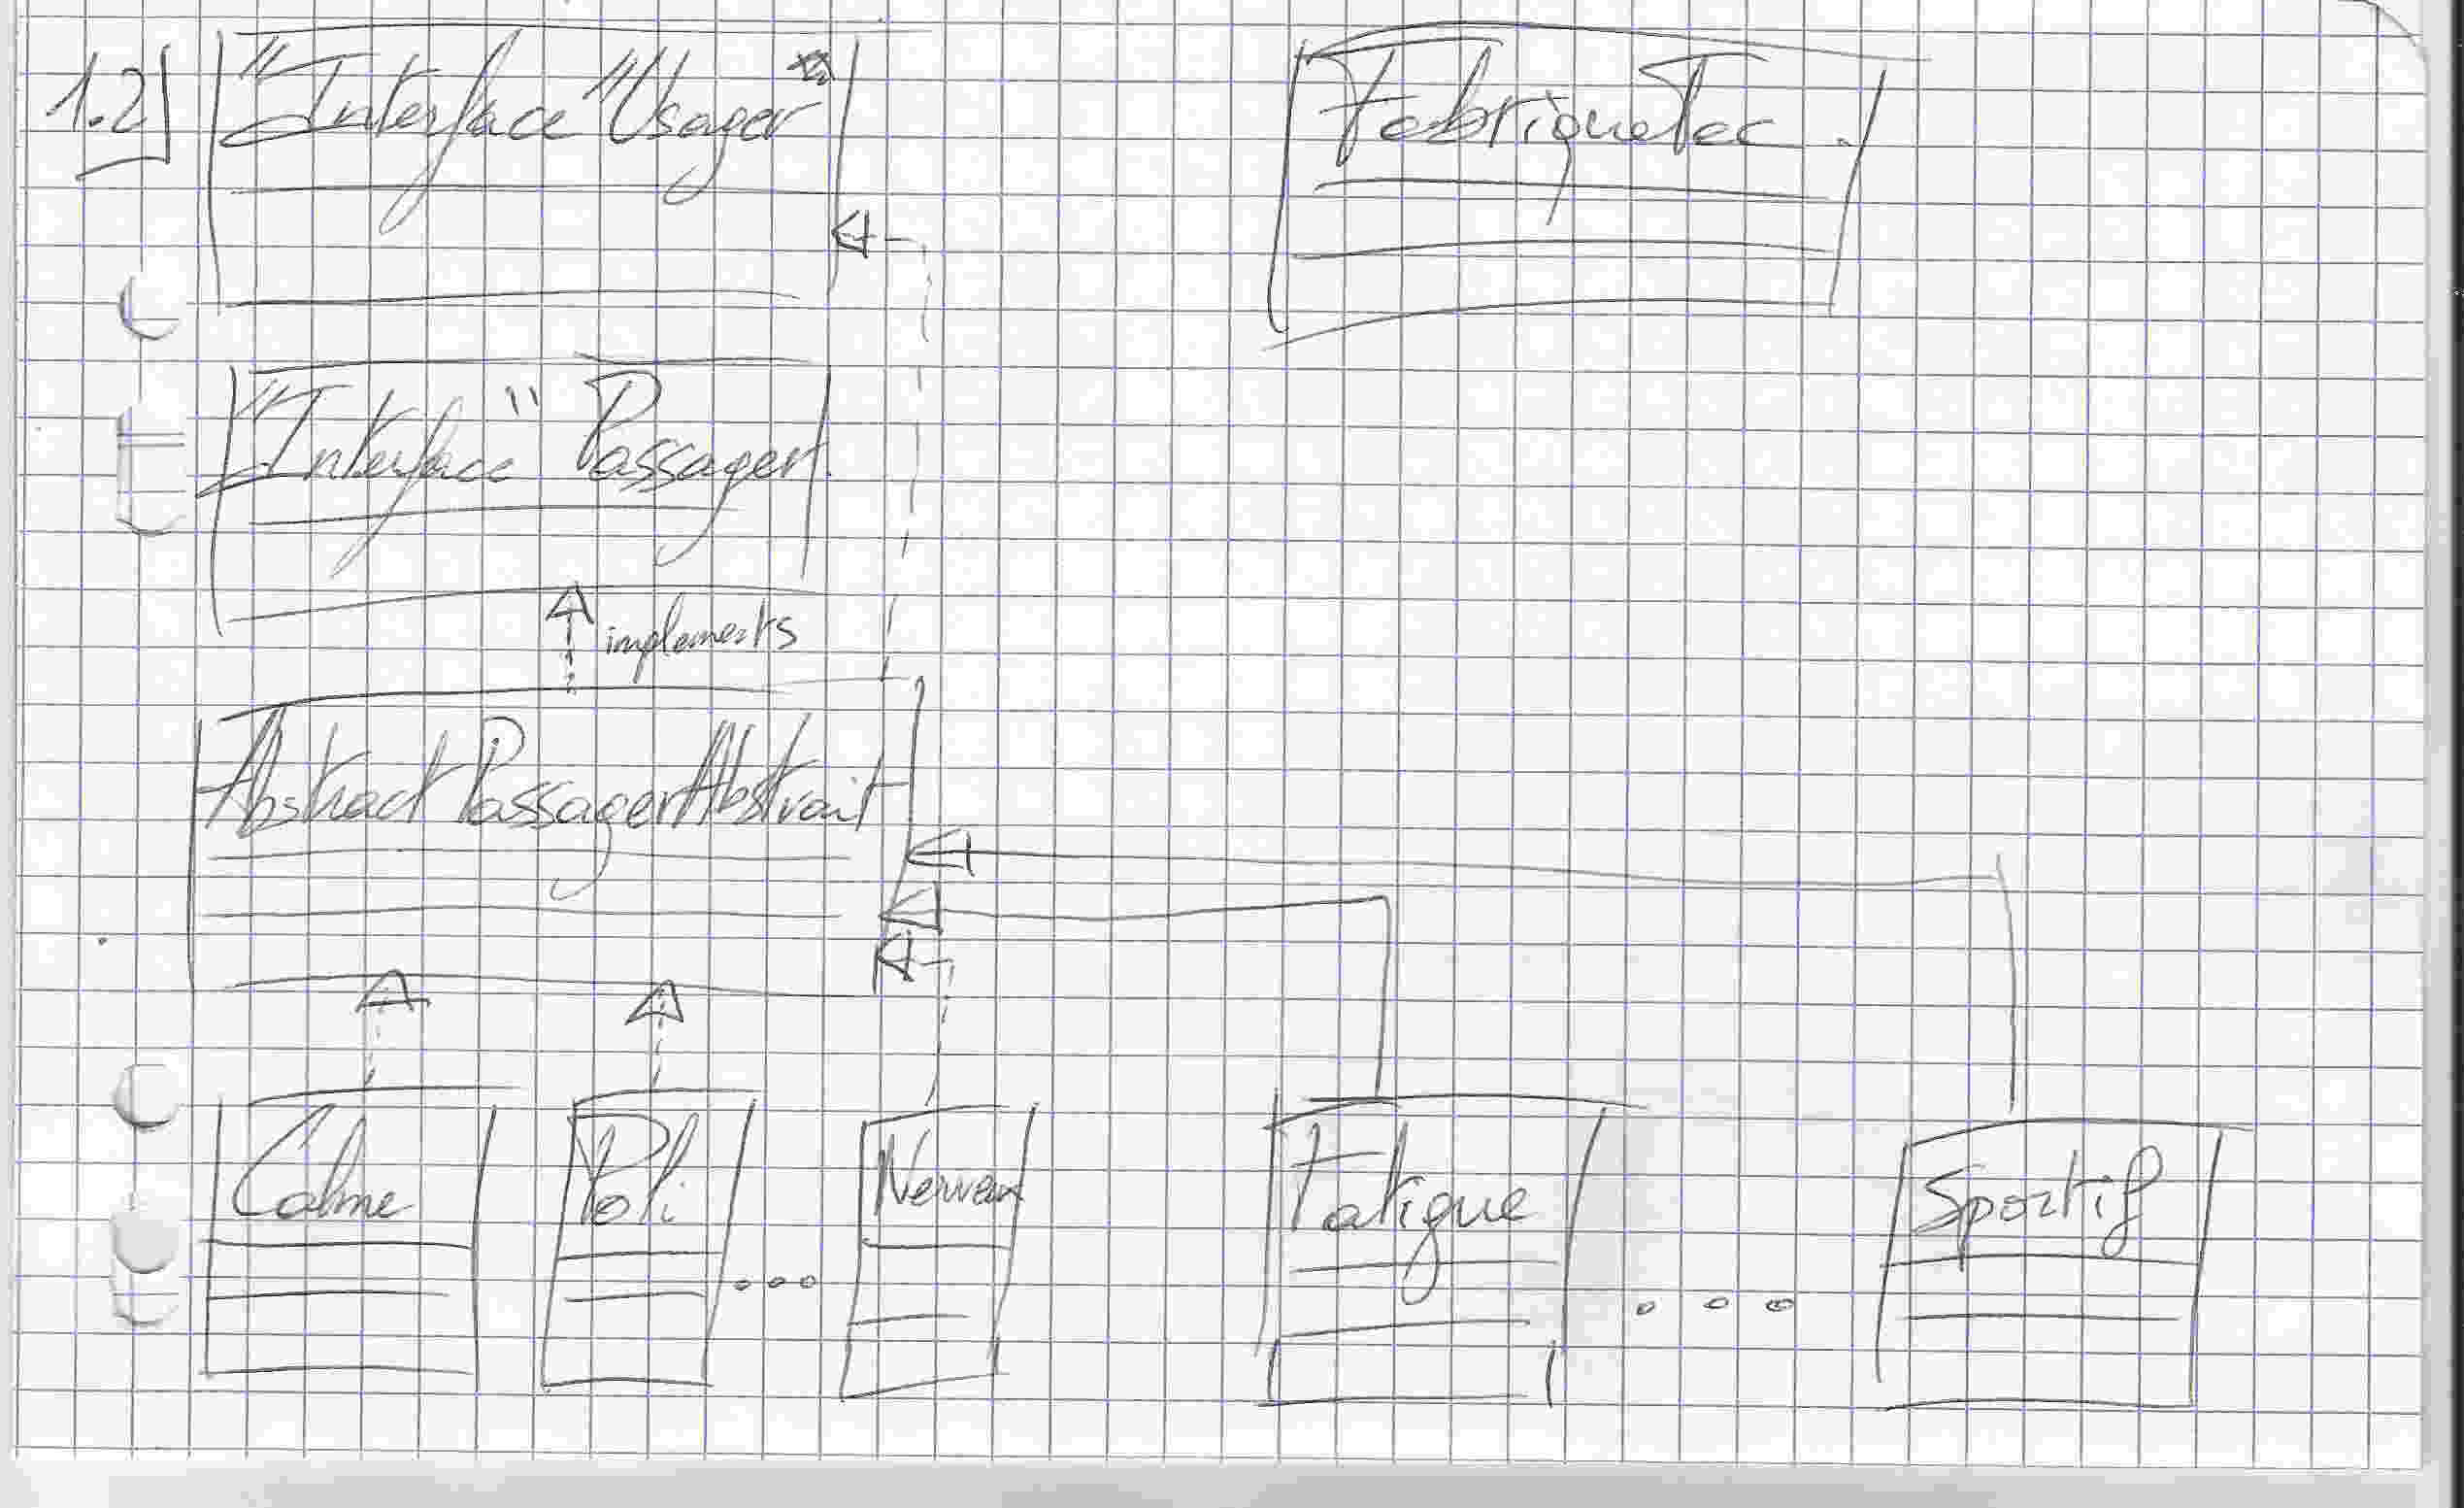 1.2]
"Interface" Usager
FabriqueTec
"Interface" Passager
implements
Abstract PassagerAbstrait
Calme
Poli
...
Nerveux
Fatigue
...
Sportif